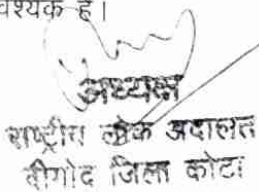 वश्यक है।
अध्यक्ष
राष्ट्रीय लोक अदालत
दीगोद जिला कोटा